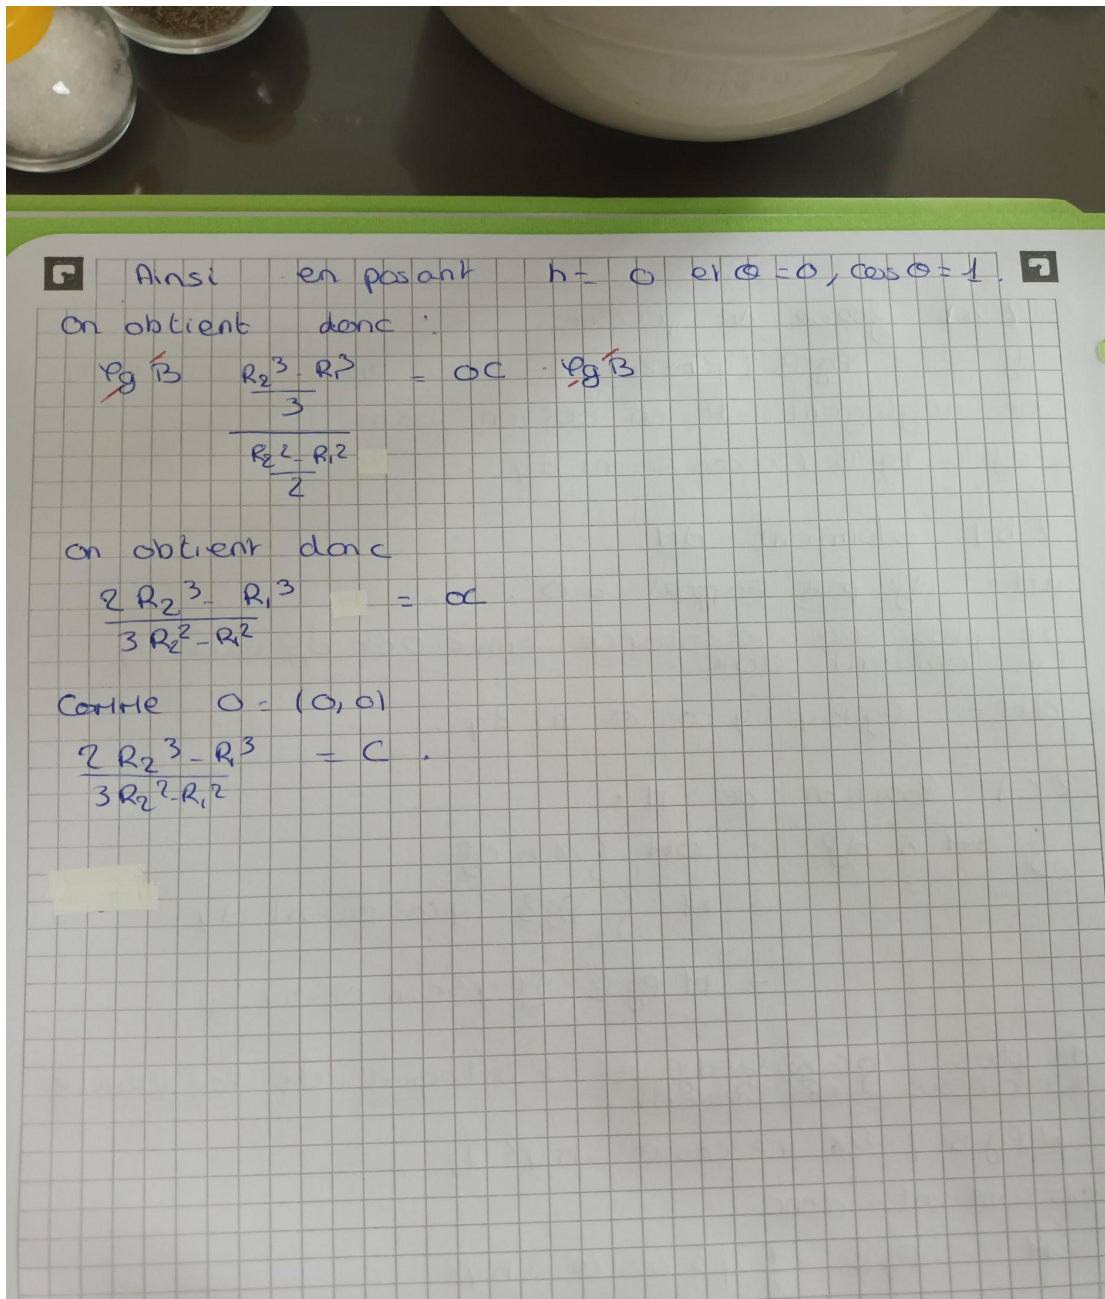 Ainsi en posant h = 0 et θ = 0, cos θ = 1.
On obtient donc :
φg B ((R₂³ - R₁³)/3) / ((R₂² - R₁²)/2) = OC · φg B
on obtient donc
(2 R₂³ - R₁³) / (3 R₂² - R₁²) = OC
Comme O = (0,0)
(2 R₂³ - R₁³) / (3 R₂² - R₁²) = C .